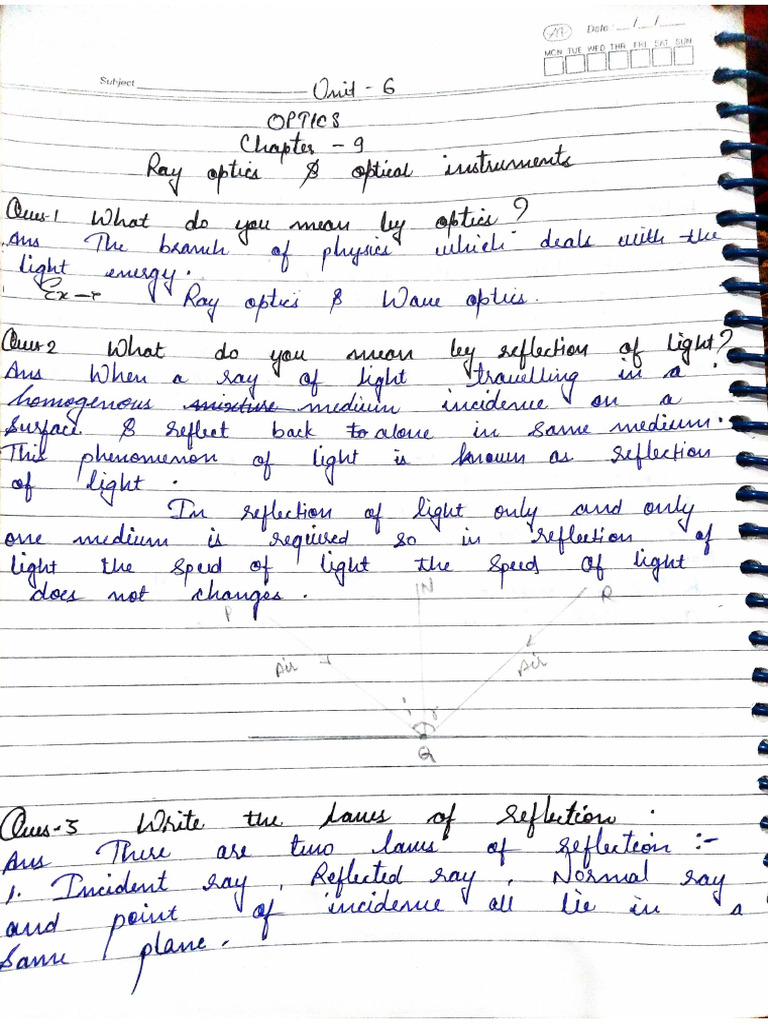 Date: __/__/__
MON TUE WED THR FRI SAT SUN
Subject
Unit - 6
OPTICS
Chapter - 9
Ray optics & optical instruments
Ques-1 What do you mean by optics?
Ans The branch of physics which deals with the
light energy.
Ex → Ray optics & Wave optics.
Ques-2 What do you mean by reflection of light?
Ans When a ray of light travelling in a
homogenous mixture medium incidence on a
surface & reflect back to alone in same medium.
This phenomenon of light is known as reflection
of light.
In reflection of light only and only
one medium is required so in reflection of
light the speed of light the speed of light
does not changes.
P N R
Air Air
i r
Q
Ques-3 Write the laws of reflection.
Ans There are two laws of reflection :-
1. Incident ray, Reflected ray, Normal ray
and point of incidence all lie in a
same plane.